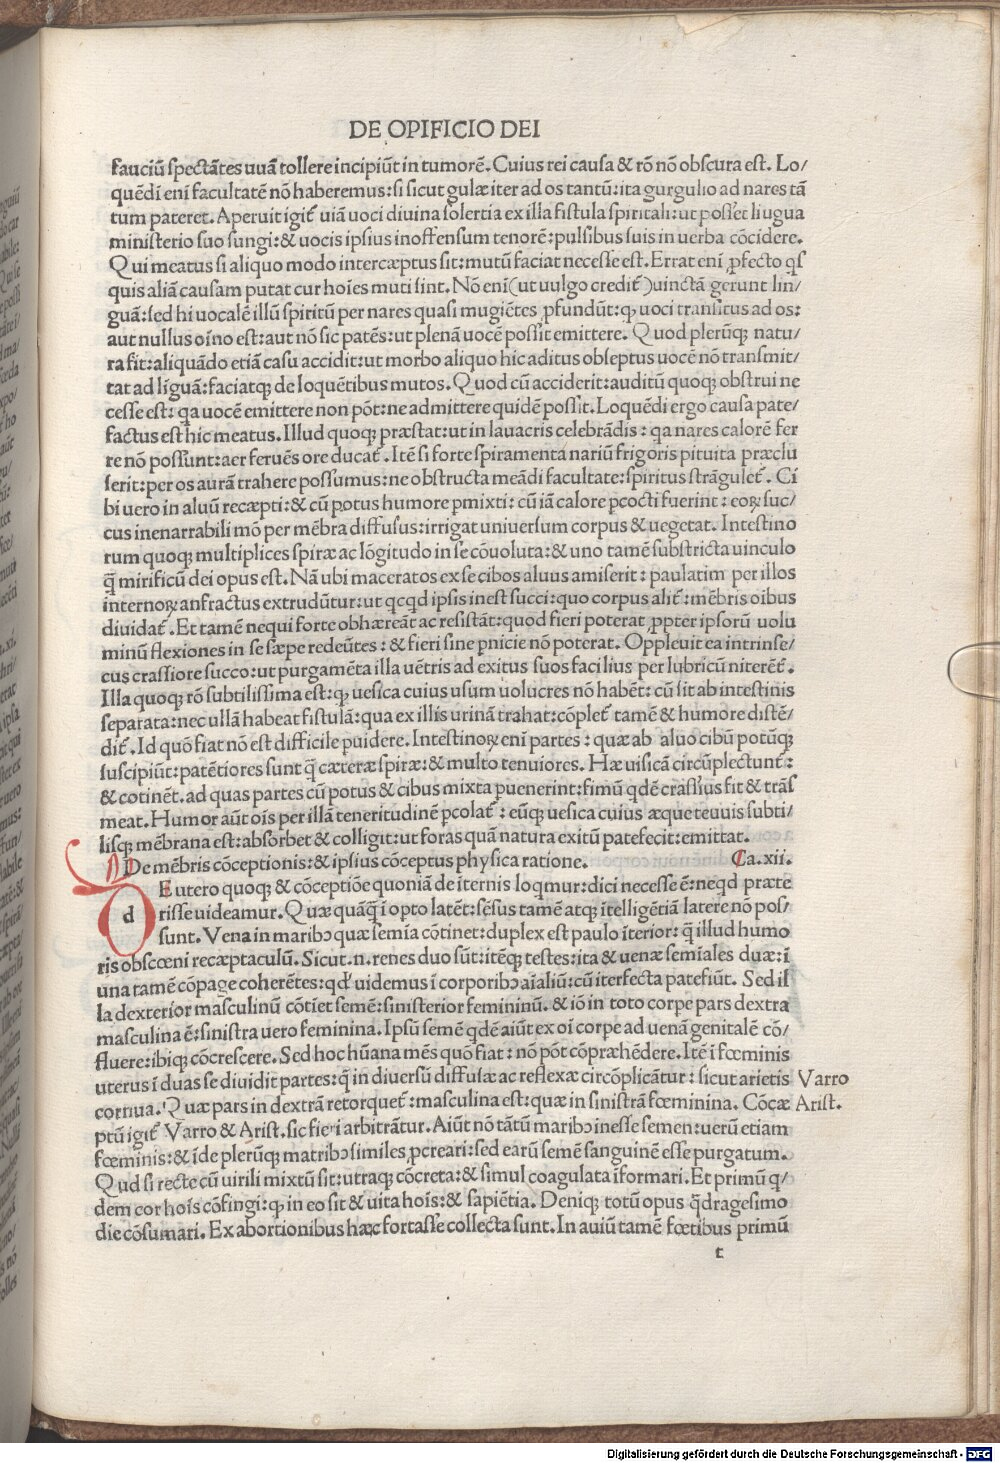 DE OPIFICIO DEI
fauciū spectātes uuā tollere incipiūt in tumorē. Cuius rei causa & rō nō obscura est. Lo/
quēdi eni facultatē nō haberemus: si sicut gulæ iter ad os tantū: ita gurgulio ad nares tā
tum pateret. Aperuit igit̄ uiā uoci diuina solertia ex illa fistula spiritali: ut posset liugua
ministerio suo fungi: & uocis ipsius inoffensum tenorē: pulsibus suis in uerba cōcidere.
Qui meatus si aliquo modo intercæptus sit: mutū faciat necesse est. Errat eni ꝓfecto qs
quis aliā causam putat cur hoies muti sint. Nō eni (ut uulgo credit̄) uinctā gerunt lin/
guā: sed hi uocalē illū spiritū per nares quasi mugiētes ꝓfundūt: qꝫ uoci transitus ad os:
aut nullus oīno est: aut nō sic patēs: ut plenā uocē possit emittere. Quod plerūqꝫ natu/
ra fit: aliquādo etiā casu accidit: ut morbo aliquo hic aditus obseptus uocē nō transmit/
tat ad līguā: faciatqꝫ de loquētibus mutos. Quod cū acciderit: auditū quoqꝫ obstrui ne
cesse est: qa uocē emittere non pōt: ne admittere quidē possit. Loquēdi ergo causa pate/
factus est hic meatus. Illud quoqꝫ præstat: ut in lauacris celebrādis: qa nares calorē fer
re nō possunt: aer feruēs ore ducat̄. Itē si forte spiramenta nariū frigoris pituita præclu
serit: per os aurā trahere possumus: ne obstructa meādi facultate: spiritus strāgulet̄. Ci
bi uero in aluū recæpti: & cū potus humore pmixti: cū iā calore pcocti fuerint: eoꝝ suc/
cus inenarrabili mō per mēbra diffusus: irrigat uniuersum corpus & uegetat. Intestino
rum quoqꝫ multiplices spiræ ac lōgitudo in se cōuoluta: & uno tamē substricta uinculo
q̄ mirificū dei opus est. Nā ubi maceratos ex se cibos aluus amiserit: paulatim per illos
internoꝝ anfractus extrudūtur: ut qcqd ipsis inest succi: quo corpus alit̄: mēbris oibus
diuidat̄. Et tamē nequi forte obhæreāt ac resistāt: quod fieri poterat ꝓpter ipsorū uolu
minū flexiones in se sæpe redeūtes: & fieri sine pnicie nō poterat. Oppleuit ea intrinse/
cus crassiore succo: ut purgamēta illa uētris ad exitus suos facilius per lubricū niterēt̄.
Illa quoqꝫ rō subtilissima est: qꝫ uesica cuius usum uolucres nō habēt: cū sit ab intestinis
separata: nec ullā habeat fistulā: qua ex illis urinā trahat: cōplet̄ tamē & humore distē/
dit̄. Id quō fiat nō est difficile puidere. Intestinoꝝ eni partes: quæ ab aluo cibū potūqꝫ
suscipiūt: patētiores sunt q̄ cæteræ spiræ: & multo tenuiores. Hæ uisicā circūplectunt̄:
& cotinēt. ad quas partes cū potus & cibus mixta puenerint: fimū qdē crassius fit & trās
meat. Humor aūt ois per illā teneritudinē pcolat̄: eūqꝫ uesica cuius æque teuuis subti/
lisqꝫ mēbrana est: absorbet & colligit: ut foras quā natura exitū patefecit: emittat.
De mēbris cōceptionis: & ipsius cōceptus physica ratione. Ca. xii.
d E utero quoqꝫ & cōceptiōe quoniā de iternis loqmur: dici necesse ē: neqd præte
risse uideamur. Quæ quāq̄ i opto latēt: sēsus tamē atqꝫ itelligētiā latere nō pos/
sunt. Vena in maribꝰ quæ semīa cōtinet: duplex est paulo īterior: q̄ illud humo
ris obscœni recæptaculū. Sicut .n. renes duo sūt: itēqꝫ testes: ita & uenæ semiales duæ: ī
una tamē cōpage coherētes: qd' uidemus ī corporibꝰ aīaliū: cū iterfecta patefiūt. Sed il
la dexterior masculinū cōtiet semē: sinisterior femininū. & iō in toto corpe pars dextra
masculina ē: sinistra uero feminina. Ipsū semē qdē aiūt ex oi corpe ad uenā genitalē cō/
fluere: ibiqꝫ cōcrescere. Sed hoc hūana mēs quō fiat: nō pōt cōpræhēdere. Itē i fœminis
uterus ī duas se diuidit partes: q̄ in diuersū diffusæ ac reflexæ circōplicātur: sicut arietis Varro
cornua. Quæ pars in dextrā retorquet̄: masculina est: quæ in sinistrā fœminina. Cōcæ Arist.
ptū igit̄ Varro & Arist. sic fieri arbitrātur. Aiūt nō tātū maribꝰ inesse semen: uerū etiam
fœminis: & īde plerūqꝫ matribꝰ similes ꝓcreari: sed earū semē sanguinē esse purgatum.
Qud si recte cū uirili mixtū sit: utraqꝫ cōcreta: & simul coagulata īformari. Et primū q/
dem cor hois cōfingi: qꝫ in eo sit & uita hois: & sapiētia. Deniqꝫ totū opus q̄dragesimo
die cōsumari. Ex abortionibus hæc fortasse collecta sunt. In auiū tamē fœtibus primū
t
Digitalisierung gefördert durch die Deutsche Forschungsgemeinschaft - DFG